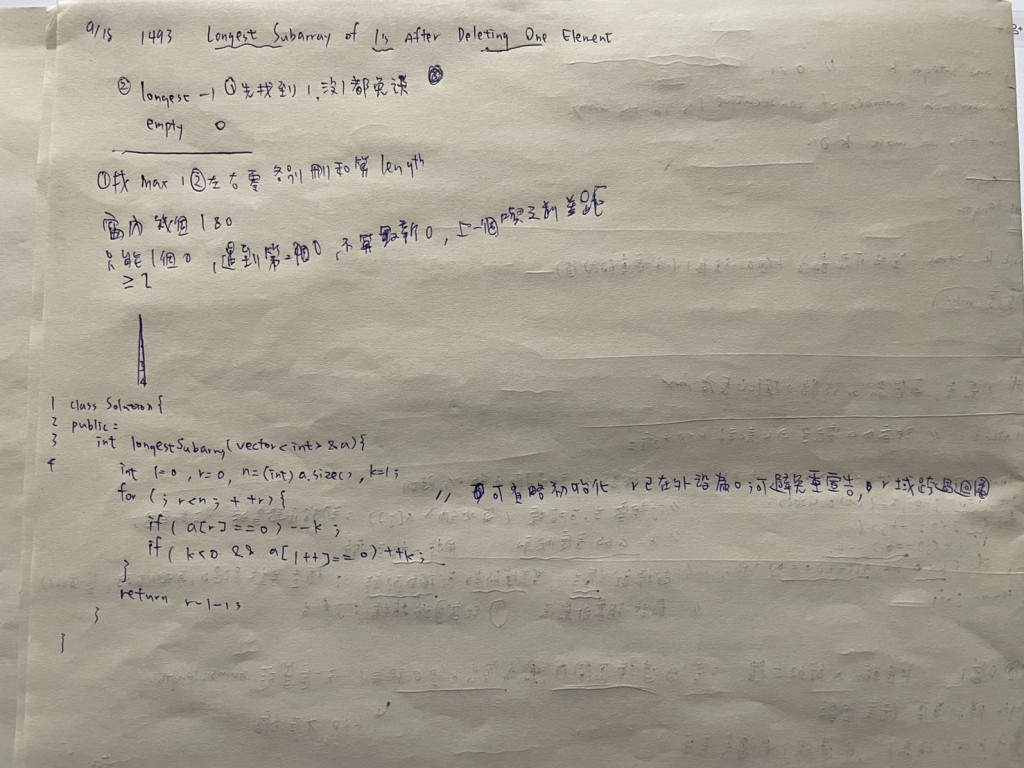 9/15 1493 Longest Subarray of 1s After Deleting One Element
② longest -1 ①先找到1,沒1都免談
empty 0
①找 max 1 ②左右零各別刪和算 length
窗內幾個 1 & 0
只能1個0,遇到第2個0,不算最新0,上一個
≥2
3
4
1 class Solution {
2 public:
3 int longestSubarray(vector<int>&a){
4 int l=0, r=0, n=(int) a.size(), k=1;
for (; r<n; ++r){ // 可省略初始化 r已在外設為0;可避免重宣告, r域跨過迴圈
if( a[r]==0) --k ;
if( k<0 && a[l++]==0) ++k;
}
return r-l-1;
}
}